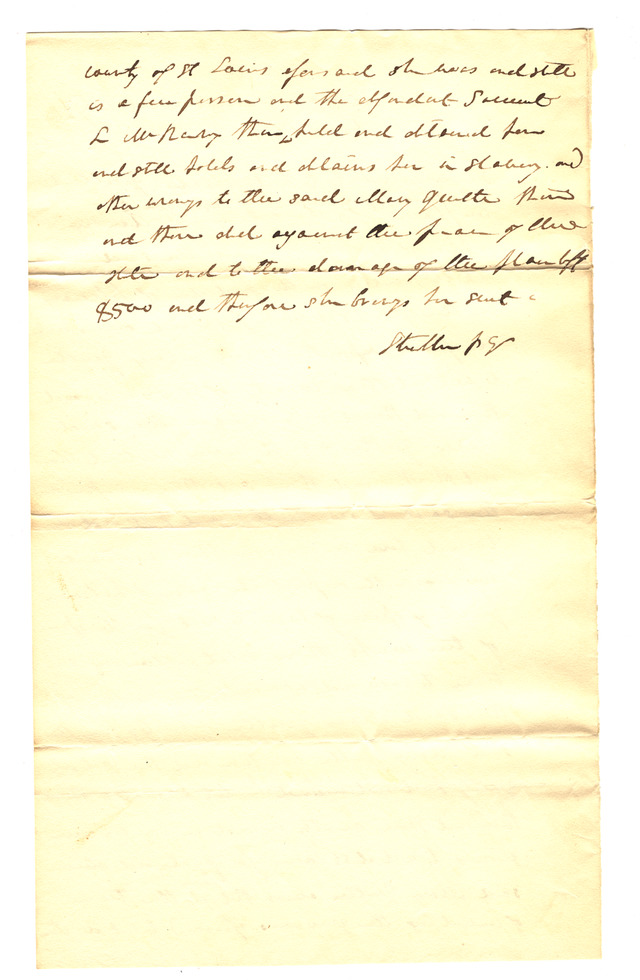 county of St Louis aforsaid she was and still
is a free person and the defendant Samuel
L McKenny then held and detained her
and still holds and detains her in slavery. and
other wrongs to the said Mary Queth then
and there did against the peace of the
state and to the damage of the plaintiff
$500 and therfore she brings her suit
p q